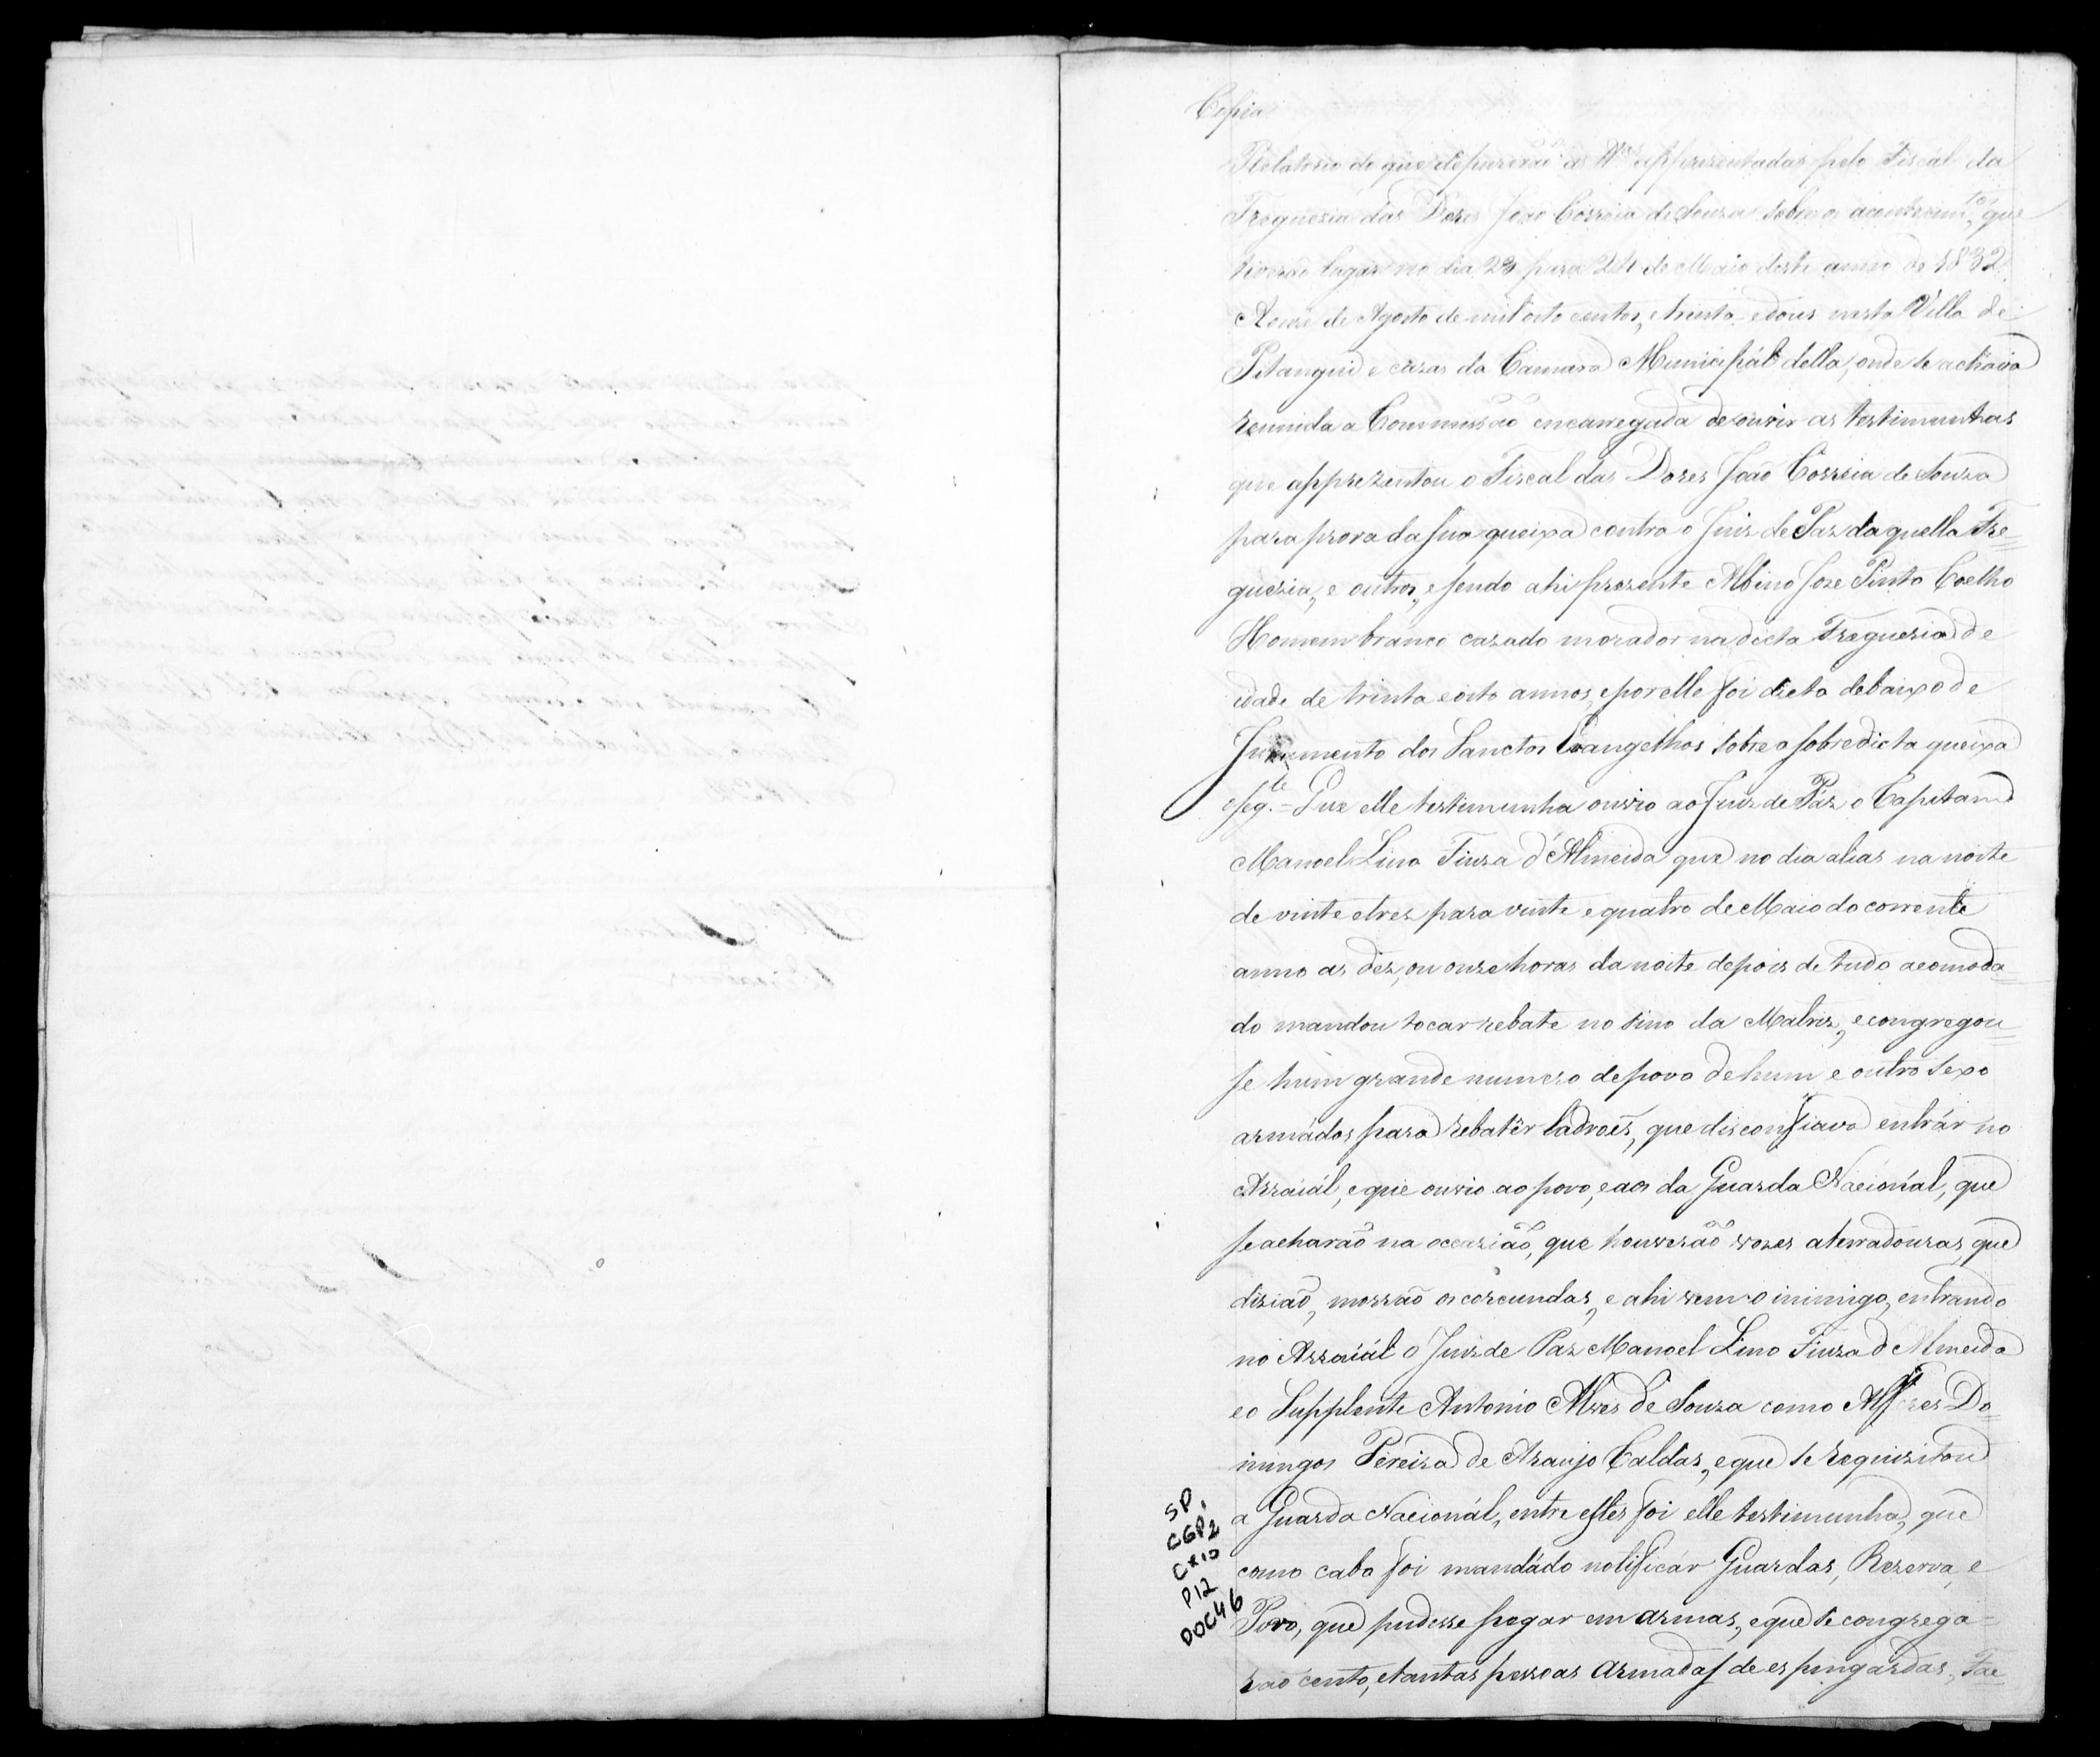 Copia
Relatorio do que depuzerão as T.as apprezentadas pelo Fiscal da
Freguezia das Dores João Correia de Souza sobre os acontecim.tos, que
tiverão lugar no dia 23 para 24 de Maio deste anno de 1832
Aonze de Agosto de mil oito centos, e trinta e dous nesta Villa de
Pitangui e cazas da Camara Municipál della, onde se achava
reunida a Commissão encarregada de ouvir as testimunhas
que apprezentou o Fiscal das Dores João Correia de Souza
para prova da sua queixa contra o Juiz de Paz daquella Fre=
guezia, e outros, e sendo ahi prezente Albino Joze Pinto Coelho
Homem branco cazado morador na dicta Freguezia de
idade de trinta e oito annos, e por elle foi dicto debaixo de
Juramento dos Sanctos Evangelhos sobre a sobredicta queixa
o seg.te = Que elle testimunha ouvio ao Juiz de Páz o Capitam
Manoel Lino Fiuza d'Almeida que no dia alias na noite
de vinte e trez para vinte e quatro de Maio do corrente
anno as dez, ou onze horas da noite depois de tudo acomoda=
do mandou tocar rebate no sino da Matriz, e congregou=
se hum grande numero de povo de hum e outro sexo
armádos para rebatêr ladroẽs, que disconfiava entrár no
Arraiál, e que ouvio ao povo, e aos da Guarda Nacionál, que
se acharão na occazião, que houverão vozes aterradouras, que
dizião, morrão os corcundas, e ahi vem o inimigo, entrando
no Arraiál o Juiz de Paz Manoel Lino Fiuza d'Almeida
e o Supplente Antonio Alves de Souza como Alferes Do=
mingos Pereira de Araujo Caldas, e que se requizitou
a Guarda Nacionál, entre estes foi elle testimunha, que
como cabo foi mandádo notificár Guardas, Rezerva, e
Povo, que pudesse pegar em armas, e que se congrega=
rão cento, e tantas pessoas armadas de espingardas, Fac=
SP
CGP2
CX10
P12
DOC46